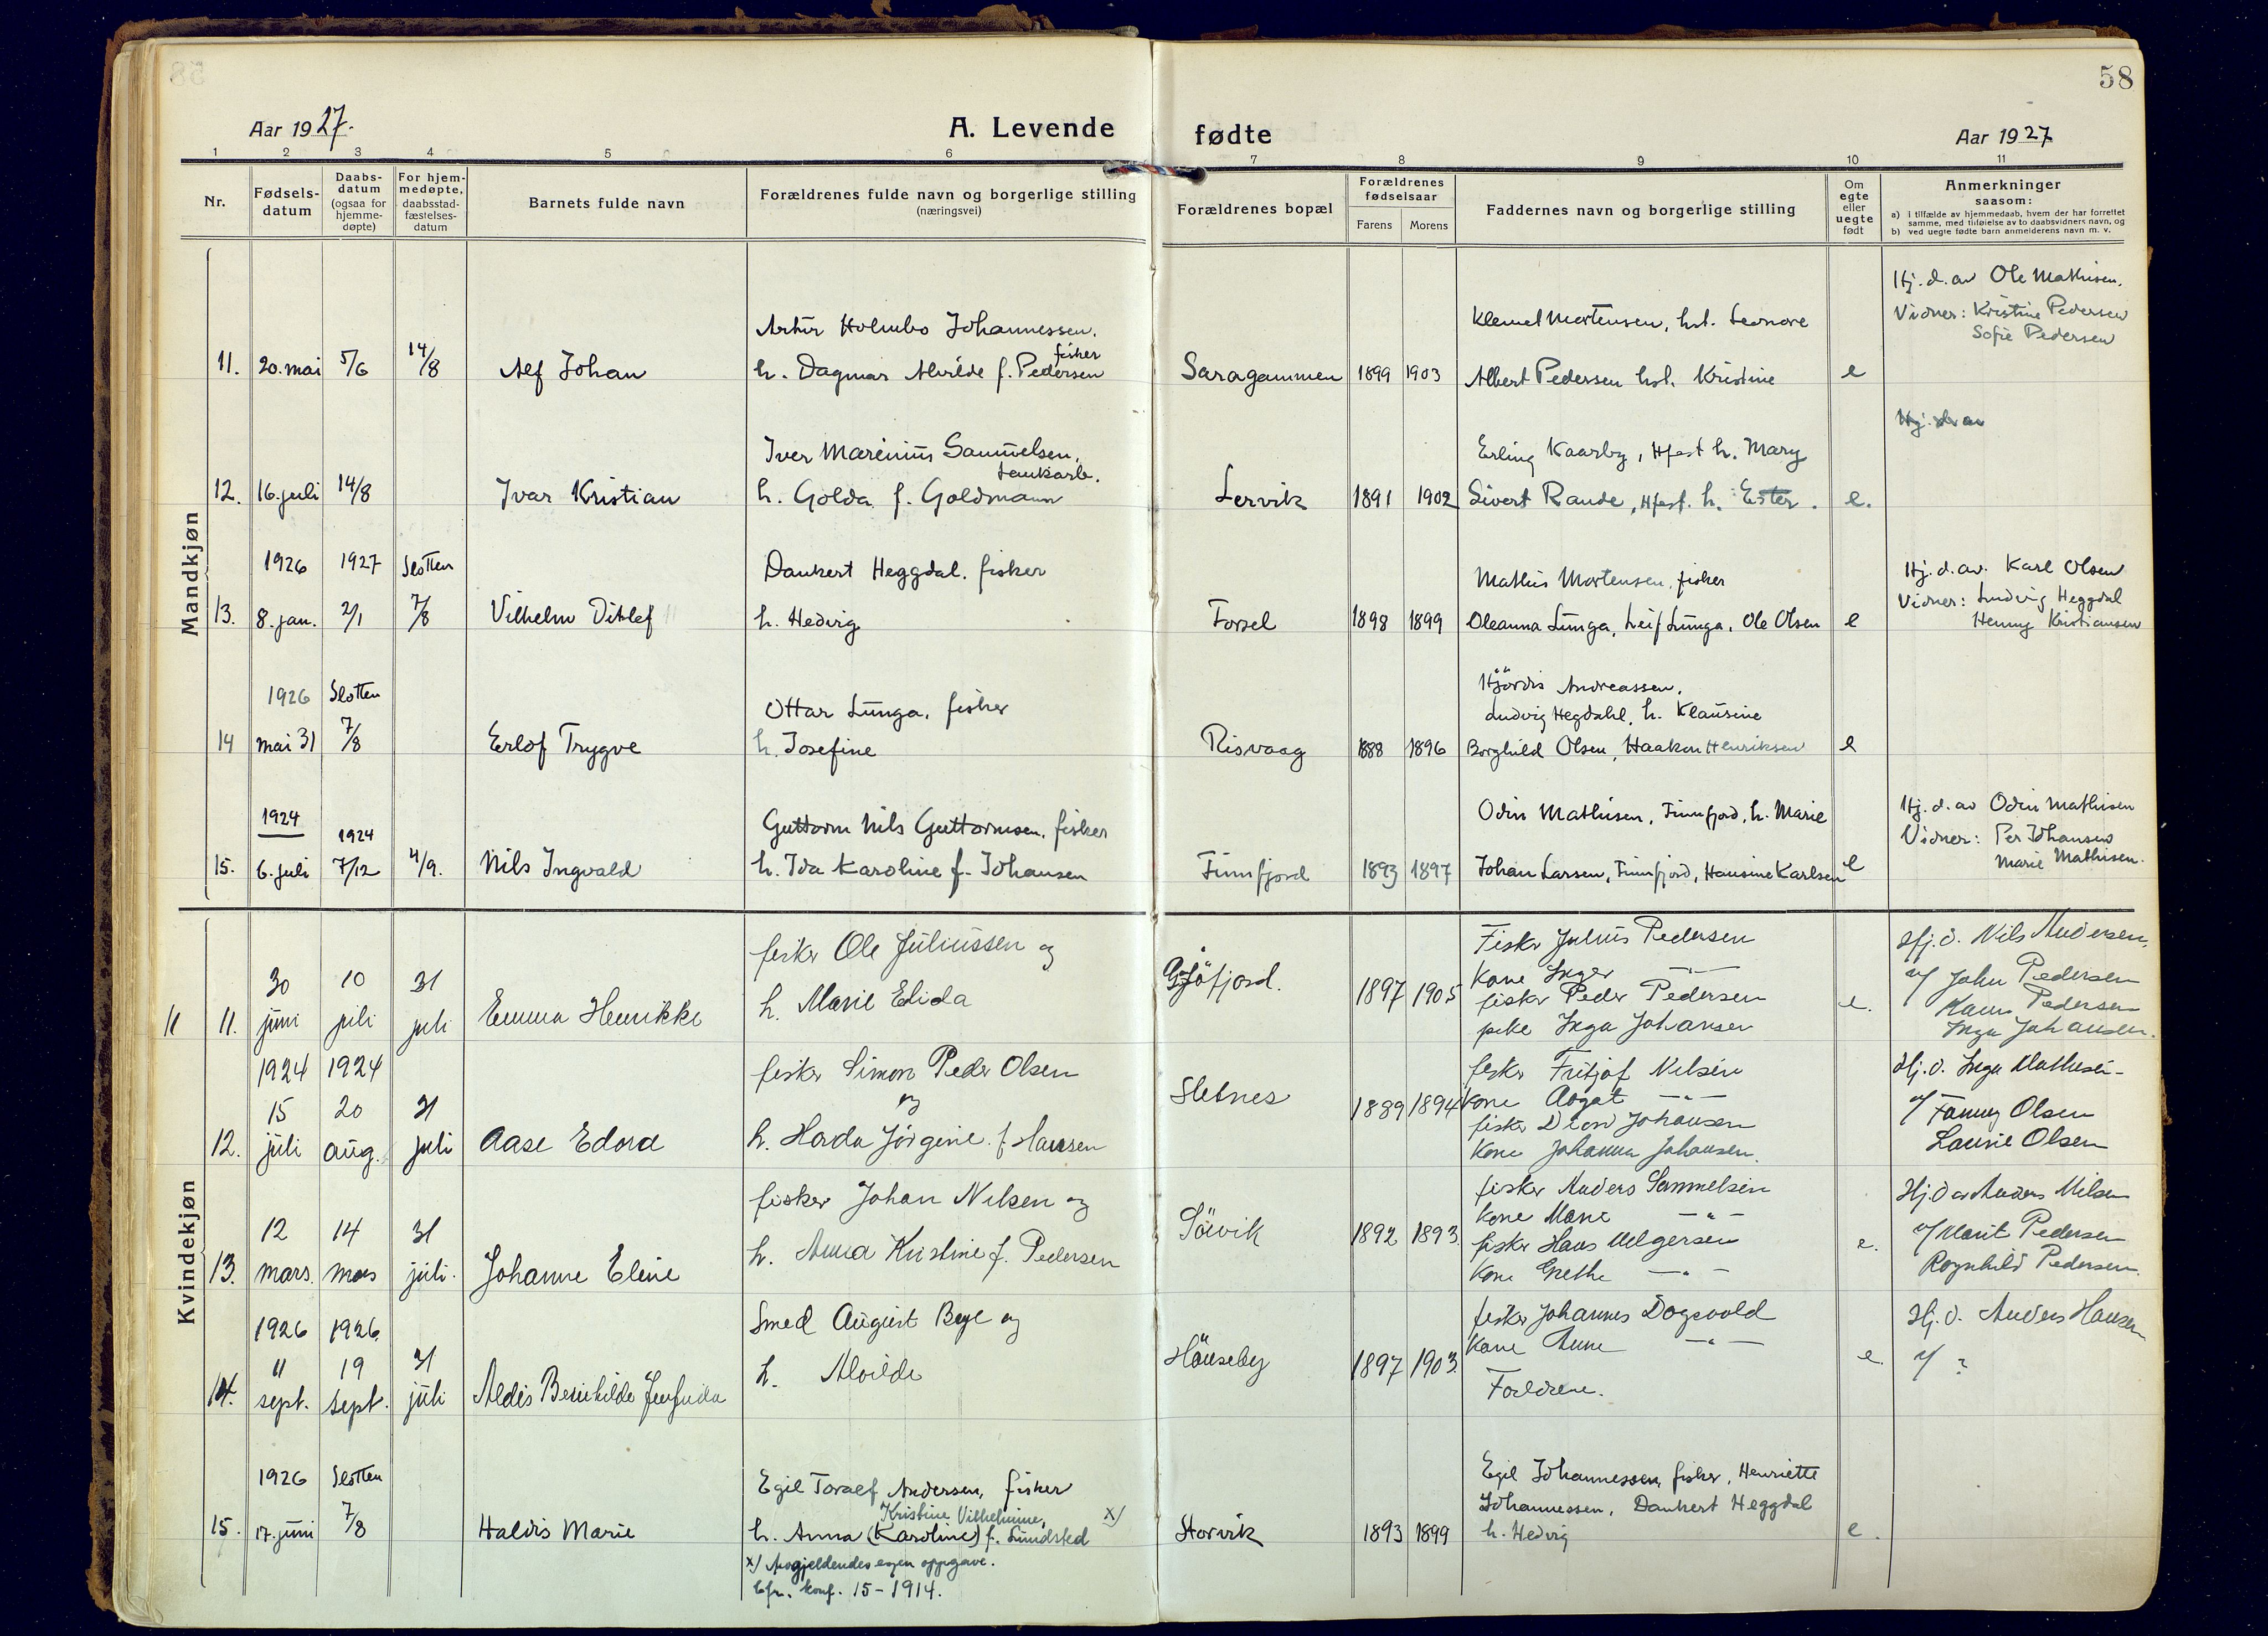 58
Aar 1927.
A. Levende fødte
Aar 1927
1 2 3 4 5 6 7 8 9 10 11
Nr.
Fødselsdatum
Daabsdatum (ogsaa for hjemmedøpte)
For hjemmedøpte, daabsstadfæstelsesdatum
Barnets fulde navn
Forældrenes fulde navn og borgerlige stilling
(næringsvei)
Forældrenes bopæl
Forældrenes fødselsaar
Farens Morens
Faddernes navn og borgerlige stilling
Om egte eller uegte født
Anmerkninger
saasom:
a) i tilfælde av hjemmedaab, hvem der har forrettet
samme, med tilføielse av to daabsvidners navn, og
b) ved uegte fødte barn anmelderens navn m. v.
Mandkjøn
Artur Holmbo Johannessen,
fisker
11. 20. mai 5/6 14/8 Alf Johan h. Dagmar Alvilde f. Pedersen
Saragammen 1899 1903
Klemet Mortensen, hst. Leonore
Albert Pedersen hst. Kristine e
Hj. d. av Ole Mathisen.
Vidner: Kristine Pedersen
Sofie Pedersen
Hj. d. av
Iver Marenius Samuelsen,
12. 16. juli 14/8 Ivar Kristian h. Golda f. Goldmann
Lervik 1891 1902
Erling Kaarby, Hfest h. Mary
Sivert Rande, Hfest. h. Ester. e.
1926 1927 Slotten
Dankert Heggdal. fisker
13. 8. jan. 2/1 7/8 Vilhelm Ditlef h. Hedvig
Forsøl 1898 1899
Mathis Mortensen, fisker
Oleanna Lunga, Leif Lunga, Ole Olsen e
Hj. d. av. Karl Olsen
Vidner: Ludvig Heggdal
Henny Kristiansen
1926 Slotten
Ottar Lunga, fisker
14 mai 31 7/8 Erlof Trygve h. Josefine
Risvaag 1888 1896
Hjördis Andreassen,
Ludvig Hegdahl, h. Klausine
Borghild Olsen, Haakon Henriksen e
1924 1924
Guttorm Nils Guttormsen, fisker
15. 6. juli 7/12 4/9. Nils Ingvald h. Ida Karoline f. Johansen
Finnfjord 1893 1897
Odin Mathisen, Finnfjord, h. Marie
Johan Larsen, Finnfjord, Hansine Karlsen e
Hj. d. av Odin Mathisen
Vidner: Per Johansen
Marie Mathisen.
Kvindekjøn
fisker Ole Juliussen og
11 11. 30 juni 10 juli 31 juli Emma Henrikke h. Marie Elida
fjord. 1897 1905
Fisker Julius Pedersen
Kone Inger —"—
fisker Peder Pedersen
pike Inga Johansen e.
Hj. d. Nils Andersen,
v/ John Pedersen
Pedersen
Inga Johansen.
1924 1924
fisker Simon Peder Olsen
og
12. 15 juli 20 aug. 31 juli Aase Edora h. Horda Jörgine f. Hansen
Sletnes 1889 1894
fisker Fritjof Nilsen
Kone —"—
fisker Johansen
Kone Johanna Johansen.
Hj. d. Inga Mathisen
v/ Fanny Olsen
Laurie Olsen
fisker Johan Nilsen og
13. 12 mars. 14 mars 31 juli. Johanne Eline h. Anna Kristine f. Pedersen
Sörvik 1892 1893.
fisker Anders Sammelsen
Kone Marie —"—
fisker Hans
Kone Grethe —"— e.
Hj. d av Anders Nilsen
v/ Marit Pedersen
Ragnhild Pedersen.
1926 1926
Smed August Beye og
14. 11 sept. 19 sept. 31 juli h. Alvilde
Hönseby 1897 1903.
fisker Johannes
Kone Anne —"—
Foreldrene. e.
Hj. d. Anders Hansen
v/ ?
1926 Slotten
Egil Toralf Andersen, fisker
Kristine Vilhelmine, x)
15. 17. juni 7/8 Haldis Marie h. Anna (Karoline) f. Lundsted
x) Avgjeldendes egen oppgave.
Cfr. konf. 15 - 1914.
Storvik 1893 1899
Egil Johannessen, fisker, Henriette
Johannessen, Dankert Heggdal
h. Hedvig e.